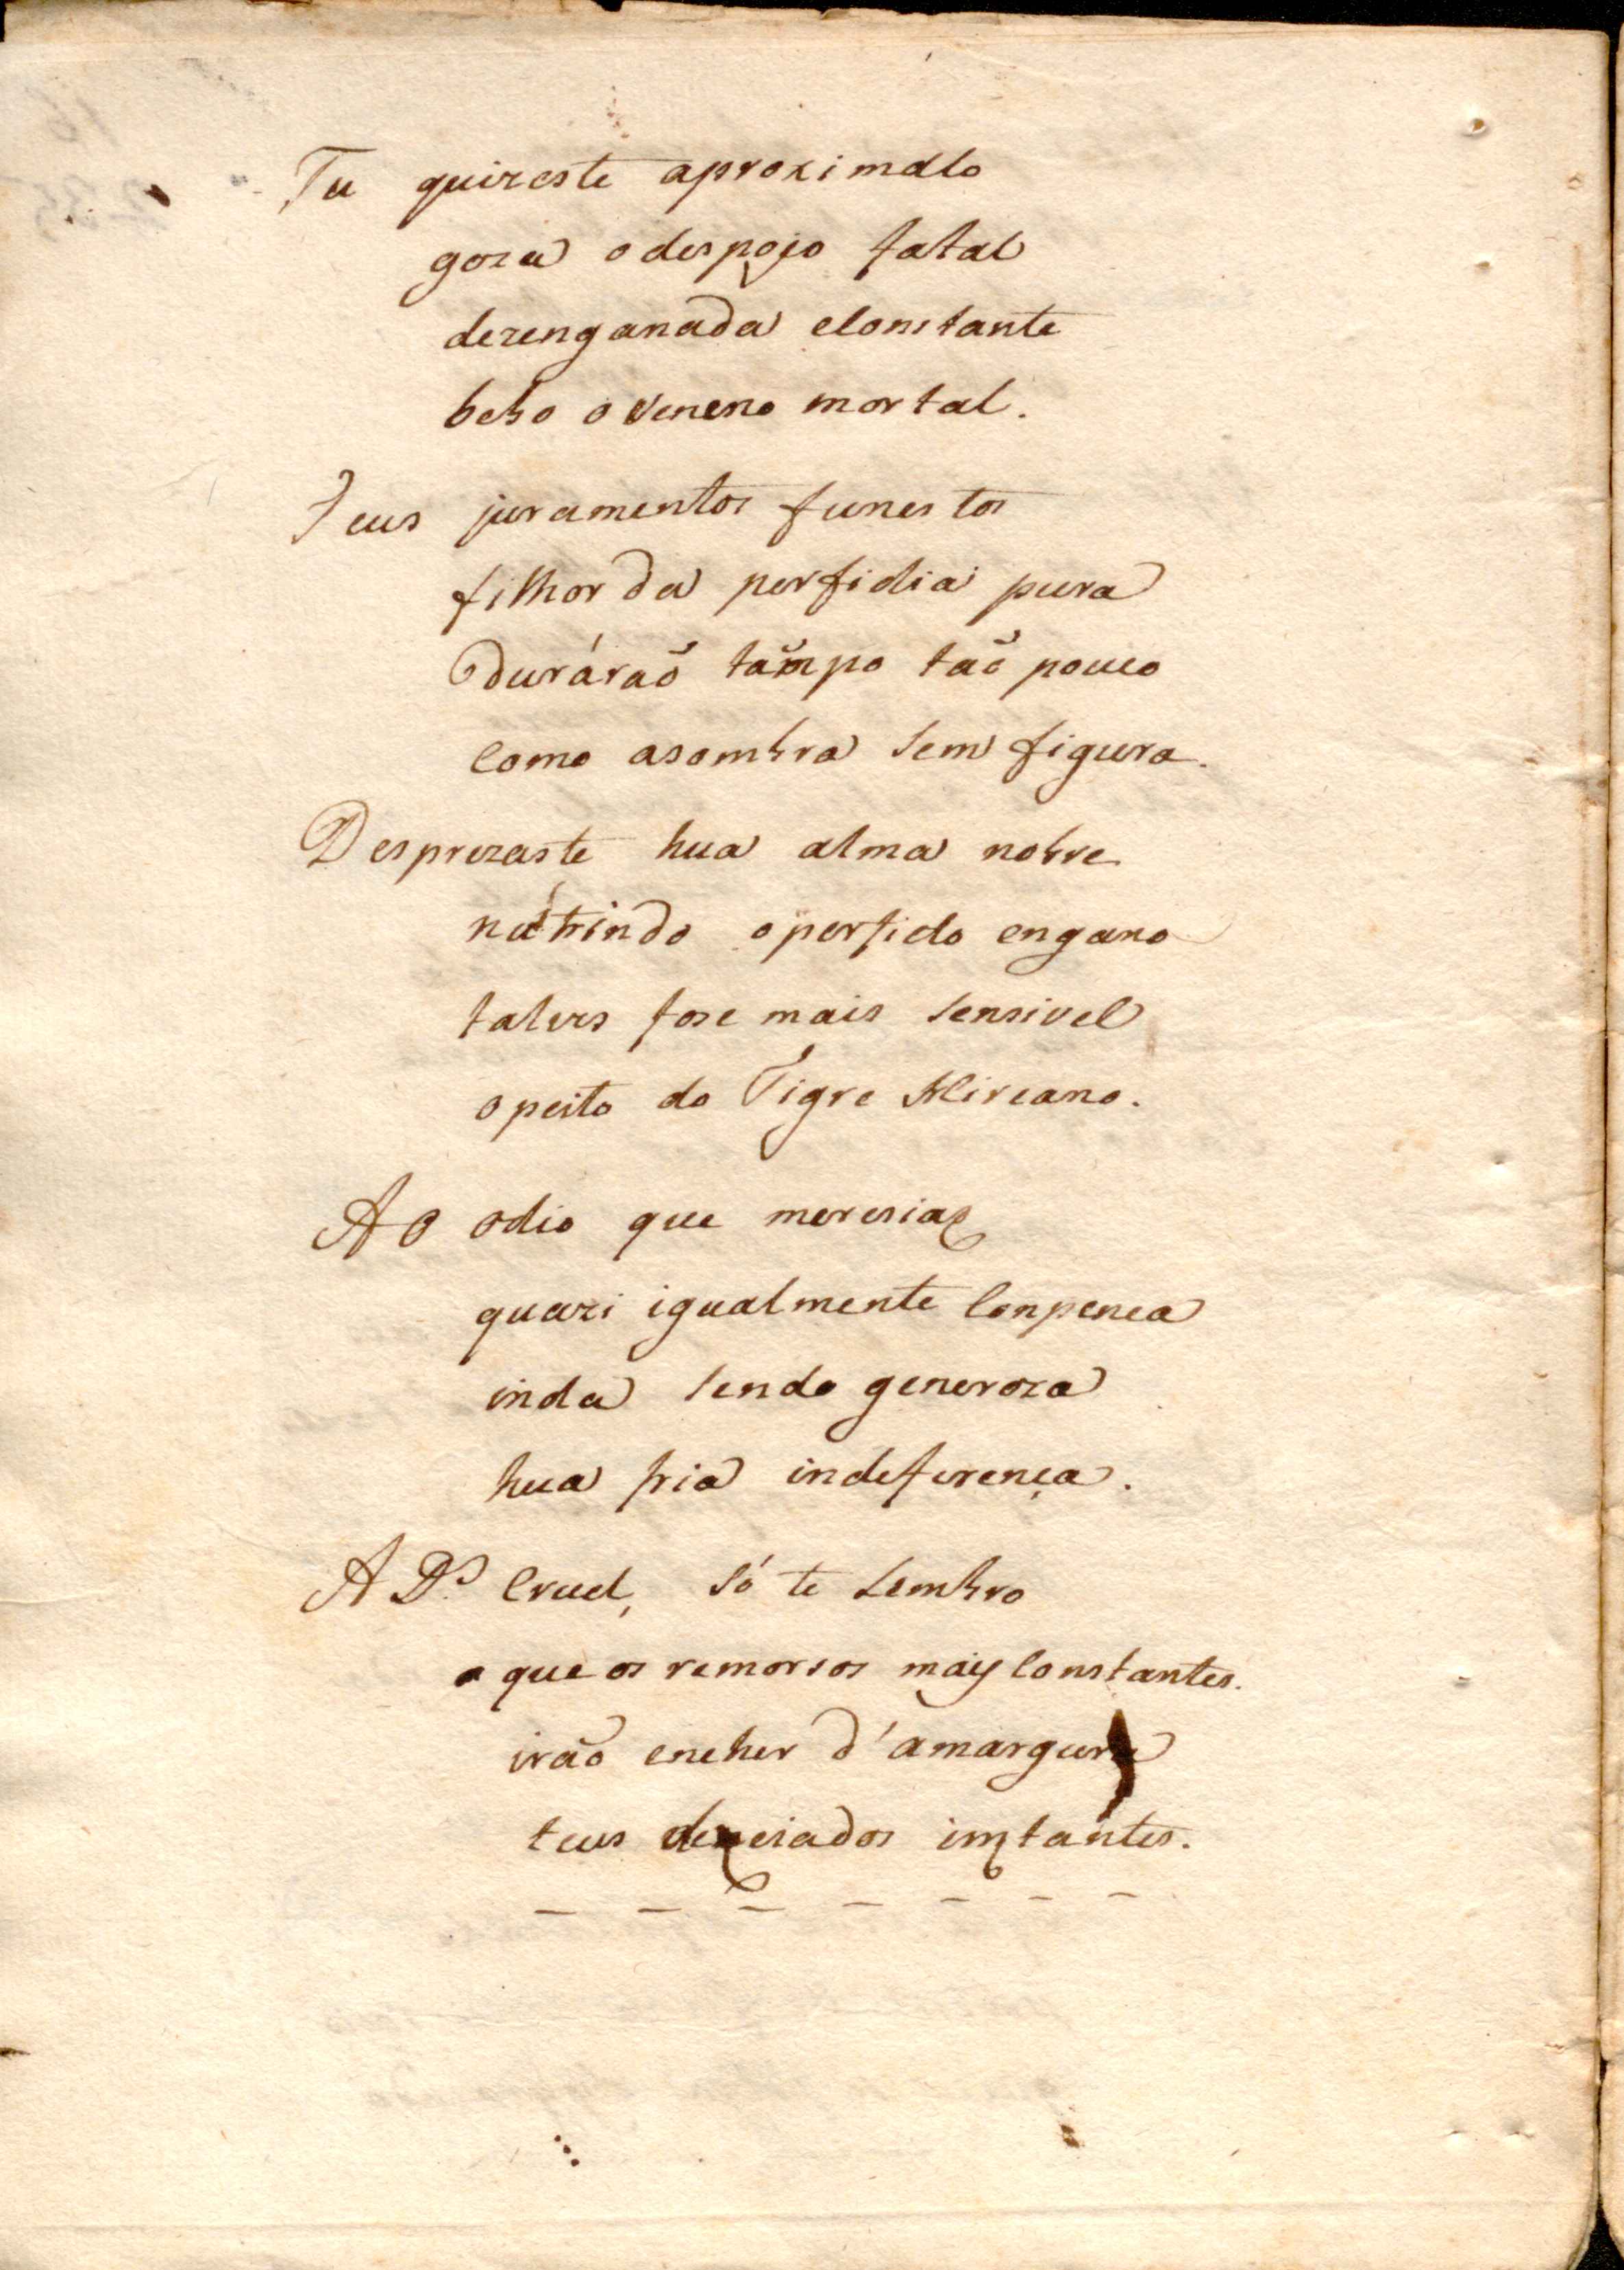 Tu quizeste aproximalo
goza o despojo fatal
dezenganada e constante
bebo o veneno mortal.
Teus juramentos funestos
filhos da perfidia pura
durárão tãmpo tão pouco
como a sombra sem figura.
Desprezaste hua alma nobre
nútrindo o perfido engano
talves fose mais sensivel
o peito do Tigre Hircano.
Ao odio que meresias
quazi igualmente conpenca
inda sendo generoza
hua fria indeferença.
A Ds. cruel, só te lembro
que os remorsos mais constantes.
irão encher d'amargura
teus dezeiados instantes.